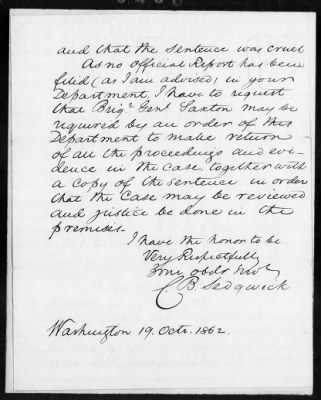 and that the sentence was cruel
As no official Report has been
filed (as I am advised) in your
Department, I have to request
that Brigr Genl Saxton may be
required by an order of this
Department to make return
of all the proceedings and evi-
dence in the case together with
a copy of the sentence in order
that the case may be reviewed
and justice be done in the
premises.
I have the honor to be
Very Respectfully
Your obdt Servt
C. B. Sedgwick
Washington 19. Octr. 1862.